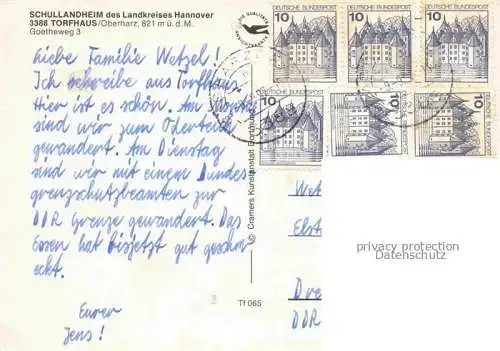 SCHULLANDHEIM des Landkreises Hannover
3388 TORFHAUS/Oberharz, 821 m ü. d. M.
Goetheweg 3
Liebe Familie Wetzel!
Ich schreibe aus Torfhaus
Hier ist es schön. Am
sind wir zum Oderteich
gewandert. Am Dienstag
sind wir mit einem Bundes-
grenzschutzbeamten zur
DDR Grenze gewandert. Das
Essen hat bisjetzt gut geschm-
eckt.
Eurer
Jens!
3
Tf 065
© Cramers Kunstanstalt Dortmund
10 DEUTSCHE BUNDESPOST
10 DEUTSCHE BUNDESPOST
10 DEUTSCHE BUNDESPOST
10
10
10
Wet
Elst
Dre
DDR
privacy protection
Datenschutz